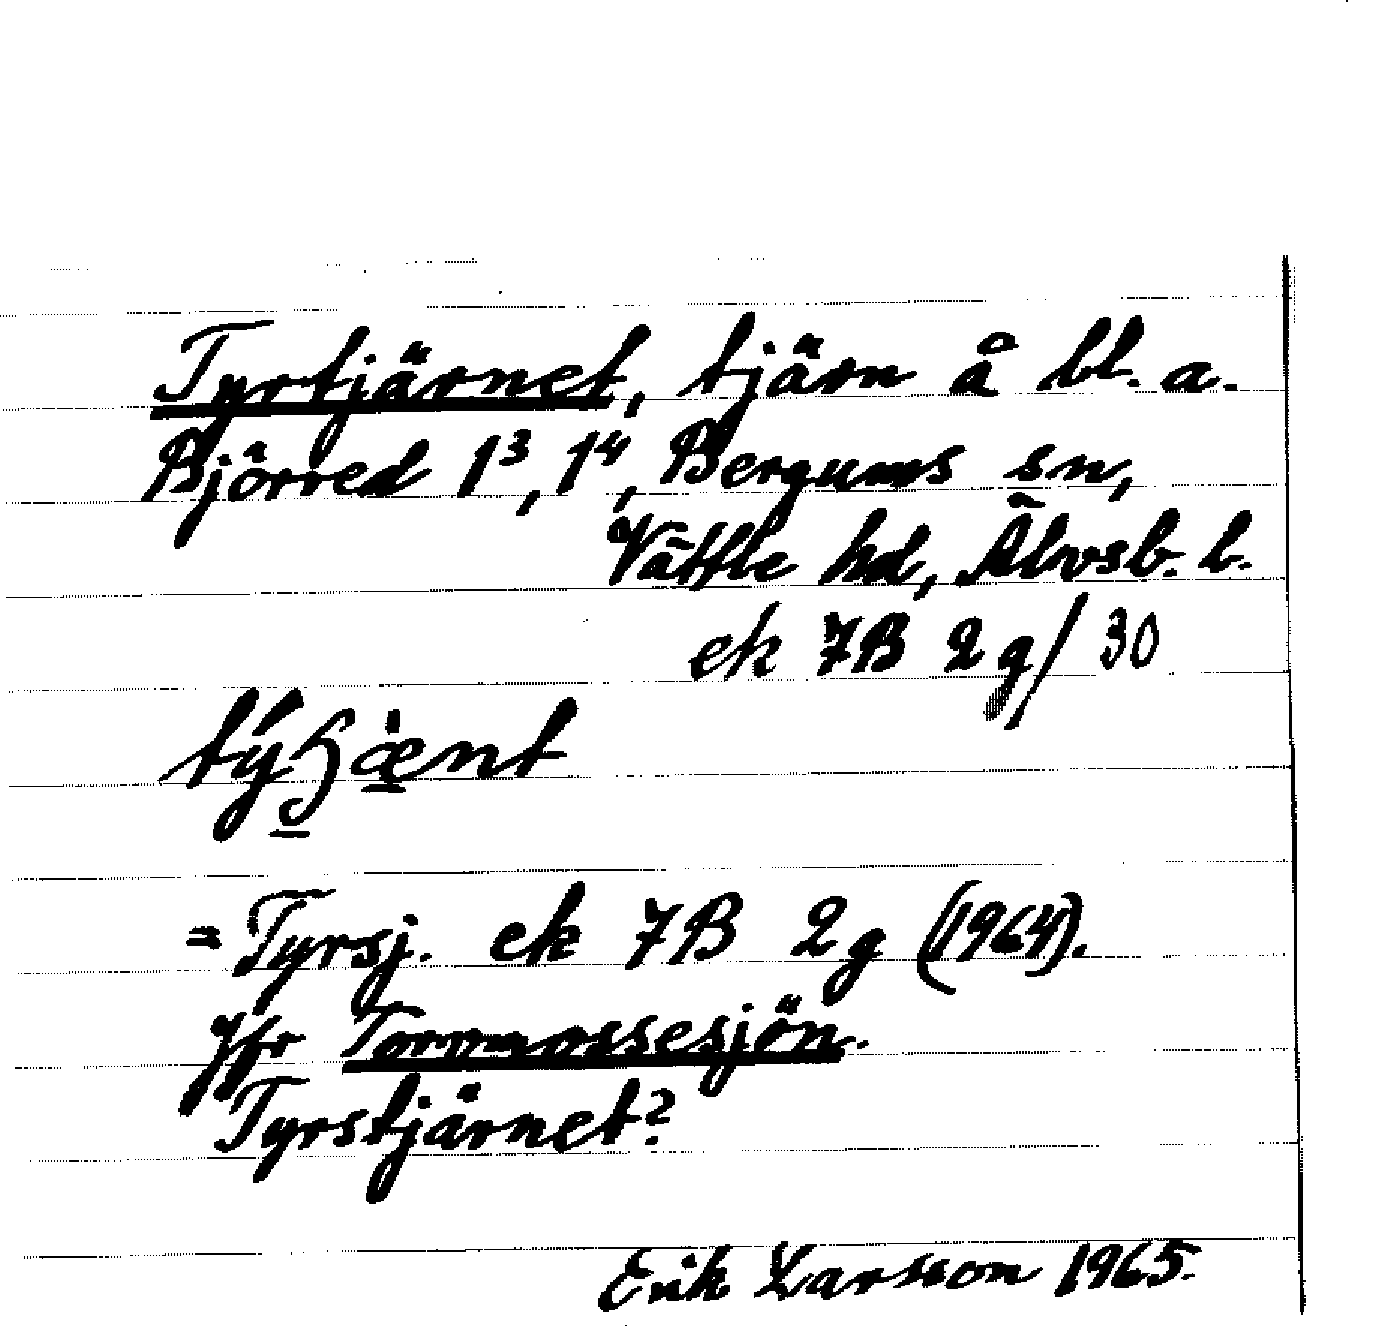 Tyrtjärnet, tjärn å bl. a.
Björred 1³, 1⁴, Bergums sn,
Vättle hd, Älvsb. l.
ek 7B 2g/30
= Tyrsj. ek 7B 2g (1964).
Jfr Torrmossesjön.
Tyrstjärnet?
Erik Larsson 1965.